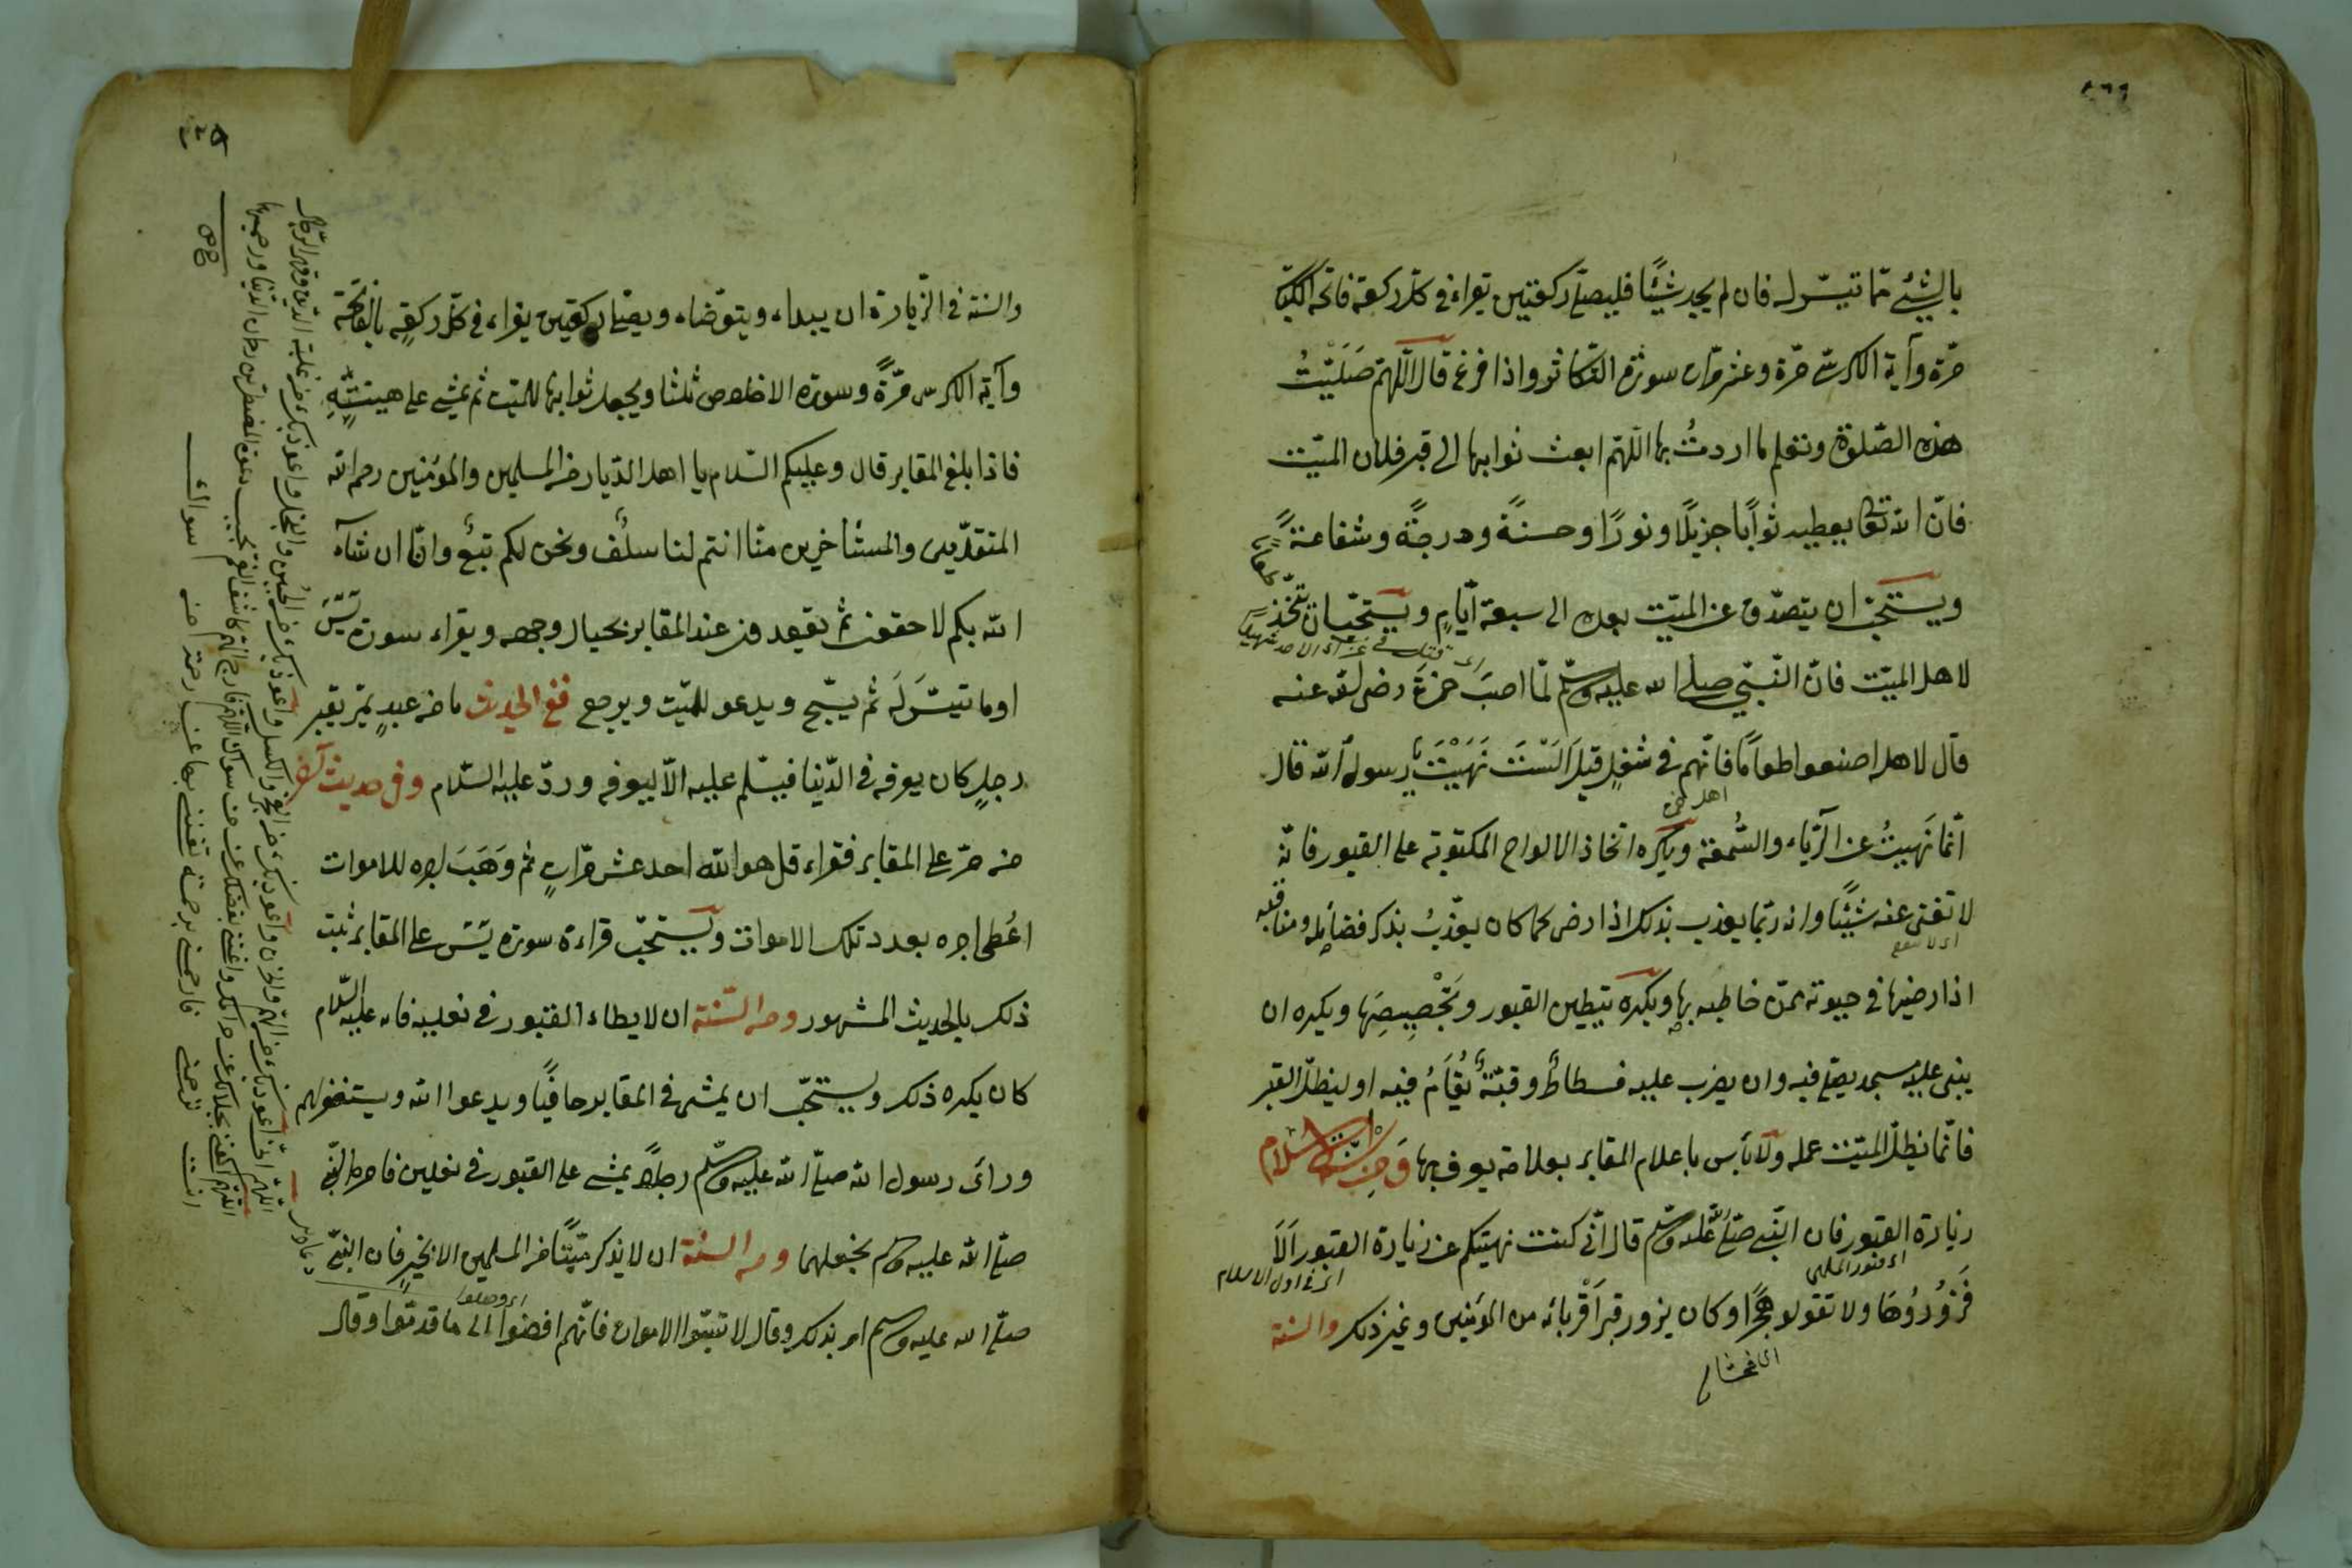 بالشيئ مما تيسّر له فان لم يجد شيئًا فليصلّ ركعتين يقراء في كلّ ركعة فاتحة الكتاب
مرّة وآية الكرسى مرّة وعشر مرّات سورة التّكاثر واذا فرغ قال اللّهمّ صَلَيّتُ
هذه الصّلوة وتعلم ما اردتُ بها اللّهمّ ابعث ثوابها الى قبر فلان الميّت
فانّ الله تعالى يعطيه ثوابًا جزيلًا ونورًا وحسنةً ودرجةً وشفاعةً
ويستحبّ ان يتصدّق عن الميّت بعده الى سبعة ايّامٍ ويستحبّ ان تتّخذ
طعامًا
لاهل الميّت فانّ النّبيّ صلى الله عليه وسلّم لمّا اصيبَ حمزةَ رضى الله عنه
قال لاهله اصنعوا طعامًا فانّهم في شغلٍ قيلَ اَلَسْتَ نَهَيْتَ يا رسول الله قال
انّما نَهيتُ عن الرّياء والسُّمعة ويكره اتخاذ الالواح المكتوبة على القبور فانّه
لا تغنى عنه شيئًا وانه ربّما يعذب بذلك اذا رضى كما كان يعذّبُ بذكر فضائله ومناقبه
اى لا تنفع
اذا رضيها في حيوته ممّن خاطبه بها ويكره تطيين القبور وتَجْصِيصِهَا ويكره ان
يبنى عليه مسجد يصلّى فيه وان يضرب عليه فسطاطٌ وقبّةٌ يُقَامُ فيه او ليظلّ القبر
فانّما يظلّ الميّت عمله ولا بأس باعلام المقابر بعلامة يعرف بها وَمِن سُنَّةِ الاسلام
زيارة القبور فان النّبي صلّى الله عليه وسلّم قال انّى كنت نهيتكم عن زيارة القبور اَلَا
اى في اول الاسلام
فَزُورُوهَا ولا تقولو هُجْرًا وكان يزور قبر اَقْرِبائه من المؤمنين وغير ذلك والسنة
اى فحشا
والسنة في الزّيارة ان يبداء ويتوضّاء ويصلّى ركعتين يقراء في كلّ ركعةٍ بالفاتحة
وآية الكرسى مرّةً وسورة الاخلاص ثلثا ويجعل ثوابها للميّت ثم يمشى على هينتهِ
فاذا بلغ المقابر قال وعليكم السّلام يا اهل الدّيار من المسلمين والمؤمنين رحم الله
المتقدّمين والمستأخرين منّا انتم لنا سلفٌ ونحن لكم تبعٌ وانّا ان شاء
الله بكم لاحقون ثمّ يقعد عند المقابر بحيال وجهه ويقراء سورة يٰسٓ
اوما تيسّرَ لَه ثم يسبّح ويدعو للميّت ويرجع ففي الحديث ما من عبدٍ يمرّ بقبر
رجلٍ كان يعرفه في الدّنيا فيسّلم عليه الّا ليعرفه وردّ عليه السّلام وفي حديث آخر
من مرّ على المقابر فقراء قل هو الله احد عشر مرّاتٍ ثم وَهَبَ اجره للاموات
اعُطى اجره بعدد تلك الاموات ويستحبّ قراءة سورة يٰسٓ على المقابر ثبت
ذلك بالحديث المشهور ومن السّنة ان لا يطاء القبور في نعليه فانه عليه السّلام
كان يكره ذلك ويستحبّ ان يمشى في المقابر حافيًا ويدعوا الله ويستغفر لهم
وراى رسول الله صلّى الله عليه وسلّم رجلًا يمشى على القبور في نعلين فامره النّبى
صلّى الله عليه وسلم بخلعهما ومن السنة ان لا يذكر ميّتًا من المسلمين الا بخيرٍ فان النبىّ
صلّى الله عليه وسلم امر بذلك وقال لا تسبّوا الاموات فانّهم افضوا الى ما قدمّوا وقال
اى وصلوا
اللّهمّ انّى اعوذ بك من الهمّ والحزن واعوذ بك من العجز والكسل واعوذ بك من الجُبن والبخل واعوذ بك من غلبة الدّين وقهر الرّجال
اللّهمّ اكفنى بحلالك عن حرامك واغننى بفضلك عمّن سواك اللّهمّ فارج الهمّ كاشف الغمّ مجيب دعوة المضطرّين رحمن الدّنيا ورحيمها
انت ترحمنى فارحمنى برحمة تغننى بها عن رحمة من سواك